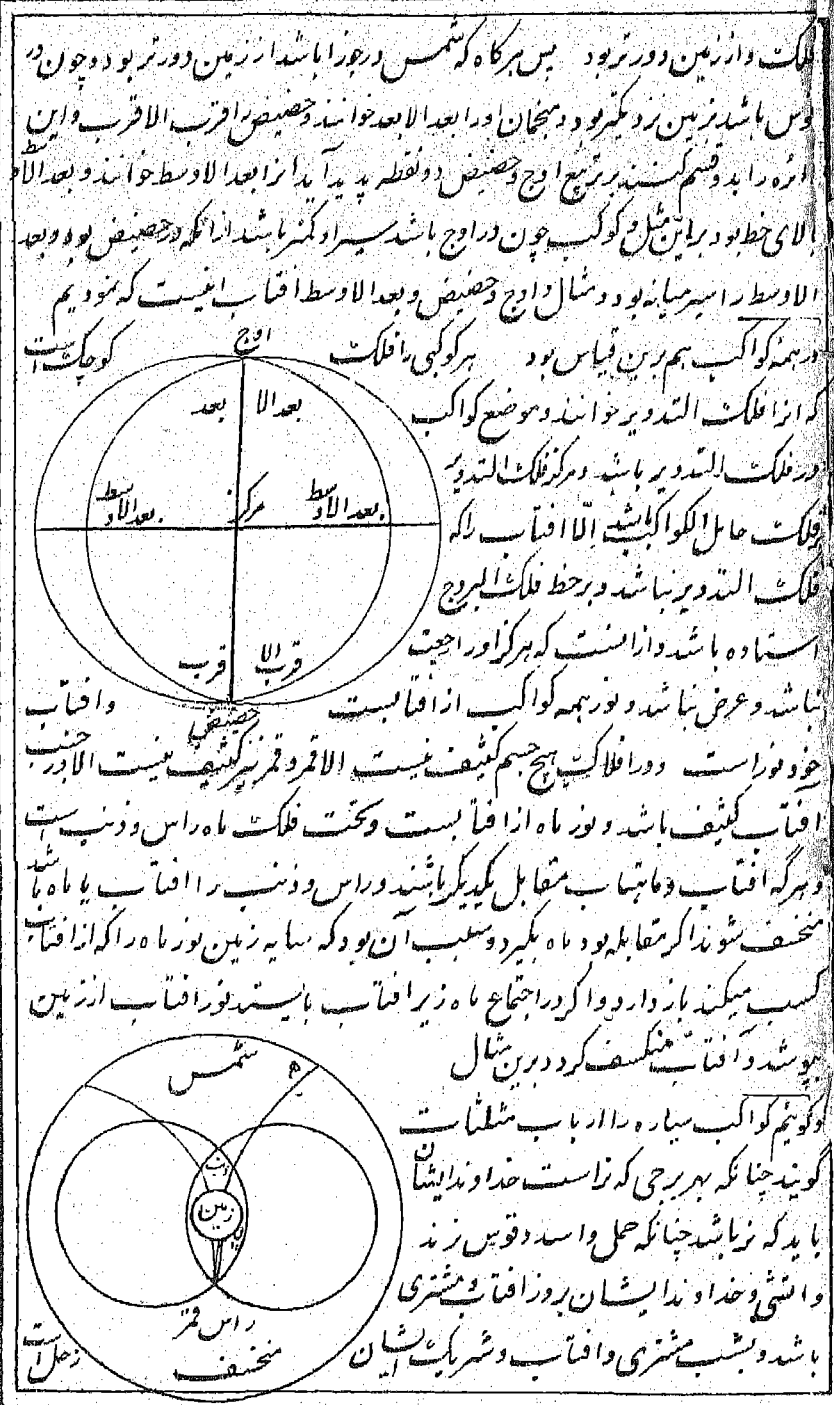 فلک و از زمین دورتر بود پس هرگاه که شمس در جوزا باشد از زمین دورتر بود و چون در
قوس باشد بزمین نزدیکتر بود و منجمان اورا بعد الابعد خوانند و حضیض را قرب الاقرب و این
دائره را بدو قسم کنند بر تربیع اوج و حضیض دو نقطه پدید آید آنرا بعد الاوسط خوانند و بعد الاوسط
بالای خط بود برین مثل و کوکب چون در اوج باشد سیر او کمتر باشد از آنکه در حضیض بود و بعد
الاوسط را سیر میانه بود و مثال اوج و حضیض و بعد الاوسط افتاب اینست که نمودیم
و همه کواکب هم برین قیاس بود هر کوکبی را فلک کوچک است
که انرا فلک التدویر خوانند و موضع کواکب
در فلک التدویر باشد و مرکز فلک التدویر
بر فلک حامل الکواکب باشد الّا افتاب را که
فلک التدویر نباشد و بر خط فلک البروج
استاده باشد و ازانست که هرگز اورا رجعت
نباشد و عرض نباشد و نور همه کواکب از افتابست وافتاب
خود نور است و در افلاک هیچ جسم کثیف نیست الا قمر و قمر نیز کثیف نیست الا در جنب
آفتاب کثیف باشد و نور ماه از افتابست و تحت فلک ماه راس و ذنب است
و هرگه افتاب و ماهتاب مقابل یکدیگر باشند و راس و ذنب با افتاب یا ماه باشد
منخسف شوند اگر مقابله بود ماه بگیرد و سبب آن بود که سایه زمین نور ماه را که از افتاب
کسب میکند باز دارد و اگر در اجتماع ماه زیر افتاب بایستد نور افتاب از زمین
بپوشد و آفتاب منکسف گردد برین مثال
وگوئیم کواکب سیاره را ارباب مثلثات
گویند چنانکه بهر برجی که نر است خداوند ایشان
باید که نر باشد چنانکه حمل و اسد و قوس نرند
و اتشی و خداوند ایشان بروز افتاب و مشتری
باشد و بشب مشتری و افتاب و شریک ایشان زحل است
اوج
بعد الا بعد
بعد الاوسط مرکز بعد الاوسط
قرب الا قرب
حضیض
شمس
زمین
راس قمر
منخسف